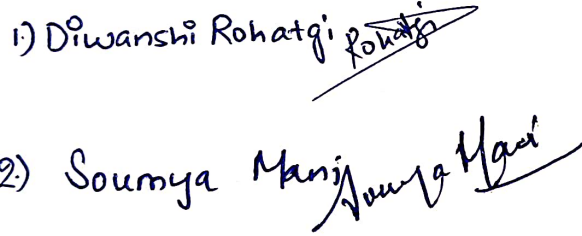 1.) Diwanshi Rohatgi Rohatgi
2.) Soumya Mani Soumya Mani